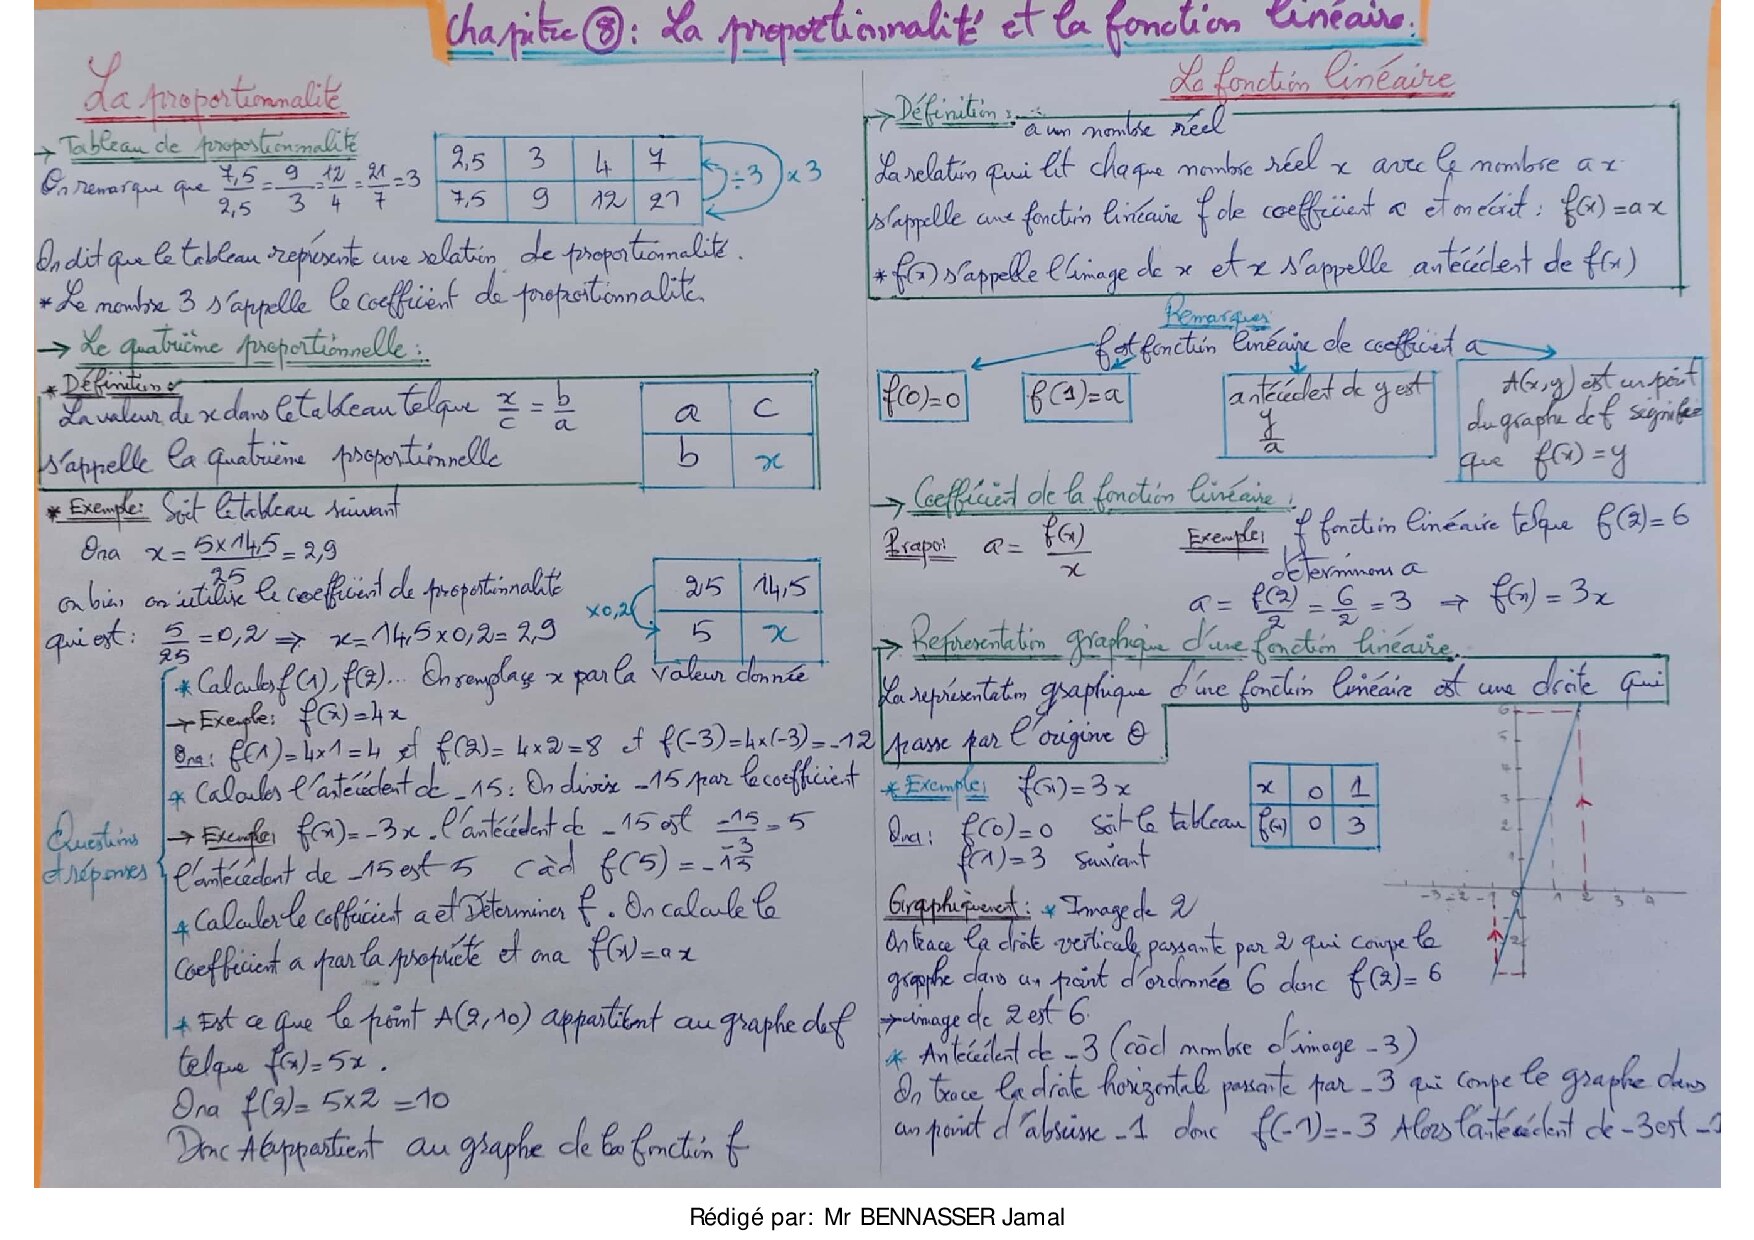 Chapitre 8 : La proportionnalité et la fonction linéaire.
La proportionnalité
→ Tableau de proportionnalité
On remarque que 7,5/2,5 = 9/3 = 12/4 = 21/7 = 3
2,5 3 4 7
7,5 9 12 21
÷3 ×3
On dit que le tableau représente une relation de proportionnalité.
* Le nombre 3 s'appelle le coefficient de proportionnalité.
→ Le quatrième proportionnelle :
* Définition :
La valeur de x dans le tableau tel que x/c = b/a
s'appelle la quatrième proportionnelle
a c
b x
* Exemple : Soit le tableau suivant
On a x = 5×14,5/25 = 2,9
ou bien on utilise le coefficient de proportionnalité
qui est : 5/25 = 0,2 ⇒ x = 14,5×0,2 = 2,9
×0,2
25 14,5
5 x
Questions et réponses
* Calculer f(1), f(2)... On remplace x par la valeur donnée
→ Exemple : f(x) = 4x
On a : f(1) = 4×1 = 4 et f(2) = 4×2 = 8 et f(-3) = 4×(-3) = -12
* Calculer l'antécédent de -15 : On divise -15 par le coefficient
→ Exemple f(x) = -3x. l'antécédent de -15 est -15/-3 = 5
l'antécédent de -15 est 5 càd f(5) = -15
* Calculer le coefficient a et Déterminer f. On calcule le
coefficient a par la propriété et on a f(x) = ax
* Est ce que le point A(2,10) appartient au graphe de f
tel que f(x) = 5x.
On a f(2) = 5×2 = 10
Donc A appartient au graphe de la fonction f
La fonction linéaire
→ Définition :
a un nombre réel
La relation qui lit chaque nombre réel x avec le nombre a x
s'appelle une fonction linéaire f de coefficient a et on écrit : f(x) = ax
* f(x) s'appelle l'image de x et x s'appelle antécédent de f(x)
Remarques
f est fonction linéaire de coefficient a
f(0)=0
f(1)=a
antécédent de y est
y/a
A(x,y) est un point
du graphe de f signifie
que f(x) = y
→ Coefficient de la fonction linéaire :
Prapo: a = f(x)/x
Exemple: f fonction linéaire tel que f(2) = 6
déterminons a
a = f(2)/2 = 6/2 = 3 ⇒ f(x) = 3x
→ Représentation graphique d'une fonction linéaire.
La représentation graphique d'une fonction linéaire est une droite qui
passe par l'origine O
* Exemple: f(x) = 3x
On a : f(0) = 0 Soit le tableau
f(1) = 3 suivant
x 0 1
f(x) 0 3
6
5
4
3
2
1
-3 -2 -1 0 1 2 3 4
Graphiquement : * Image de 2
On trace la droite verticale passante par 2 qui coupe le
graphe dans un point d'ordonnée 6 donc f(2) = 6
→ image de 2 est 6.
* Antécédent de -3 (càd nombre d'image -3)
On trace la droite horizontal passante par -3 qui coupe le graphe dans
un point d'abscisse -1 donc f(-1) = -3 Alors l'antécédent de -3 est -1
Rédigé par: Mr BENNASSER Jamal